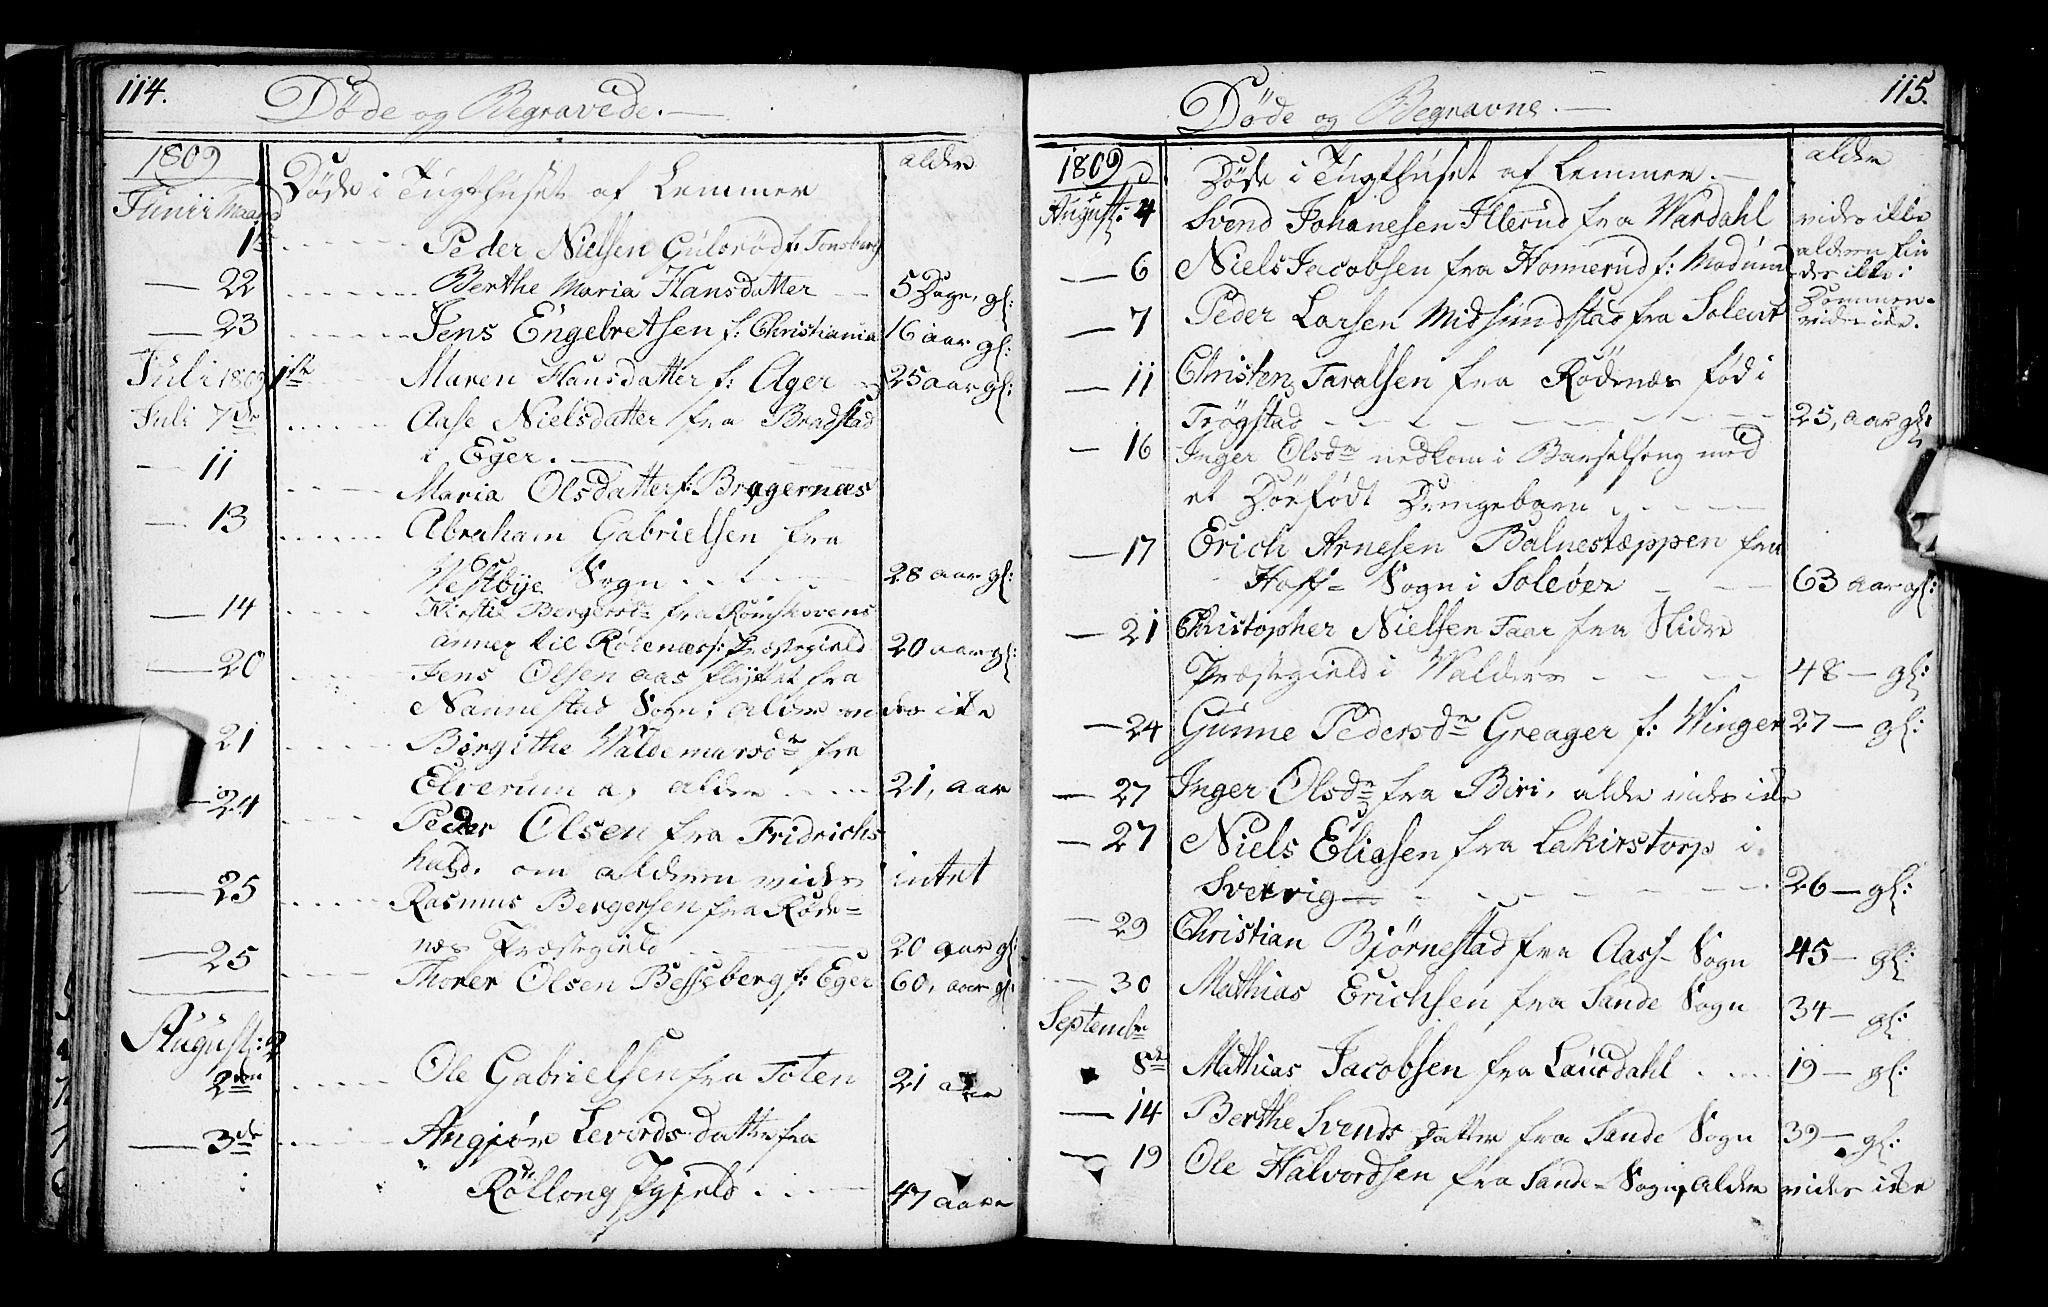 114.
Døde og Begravede.
1809
Døde i Tugthuset af Lemmer
alder
Junii Maaned
1te Peder Nielsen Gulsrød f: Tonsberg
22 Berthe Maria Hansdatter 5 Dage, gl:
23 Jens Engebretsen f: Christiania 16 aar gl:
Juli 1809 1ste Maren Hansdatter f: Ager 25 aar gl:
Juli 7de Aase Nielsdatter fra Bredstad
i Eger.
11 Maria Olsdatter f: Bragernæs
13 Abraham Gabrielsen fra
Westbye Sogn 28 aar gl:
14 Kirstie Bergersdr fra Römskovens
annex til Rödenæss: Præstegield 20 aar gl:
20 Jens Olsen aas flyttet fra
Nannestad Sogn, alder vides ikke
21 Birgithe Waldemarsdr fra
Elverum a, alder 21, aar
24 Peder Olsen fra Fridrichs
hald. om alderen vides intet
25 Rasmus Bergersen fra Røde=
næs Præstegield 20 aar gl:
25 Thorer Olsen Besseberg f: Eger 60, aar gl:
August:
2den Ole Gabrielsen fra Toten 21 aar
3de Angjør Levordsdatter fra
Röllong Pgjeld 47 aar
115.
Døde og Begravne.
1809
Døde i Tugthuset af Lemmer.
alder
August: 4 Svend Johanesen Illerud fra Wardahl vides ikke
6 Niels Jacobsen fra Honnerud f: Modum alderen fin
des ikke i
7 Peder Larsen Midsundstad fra Soleur Dommen.
vides ikke.
11 Christen Taralsen fra Rödenæs föd i
Trögstad 25, aar gl:
16 Inger Olsdr nedkom i Barselseng med
et Dödfödt Drengebarn
17 Erich Arnesen Balnestæppen fra
Hoff= Sogn i Soleöer 63 aar gl:
21 Christopher Nielsen Faar fra Slidre
Præstegield i Walders 48 — gl:
24 Gunne Pedersdr Greager f: Winger 27 — gl:
27 Inger Olsdr fra Biri, alder vides ikke
27 Niels Eliasen fra Lakirstorp i
Sverrig 26 — gl:
29 Christian Bjørnestad fra Aass Sogn 45 — gl:
30 Mathias Erichsen fra Sande Sogn 34 — gl:
Septembr
8de Mathias Jacobsen fra Laurdahl 19 — gl:
14 Berthe Svends Datter fra Sande Sogn 39 — gl:
19 Ole Halvordsen fra Sande= Sogn, alder vides ikke